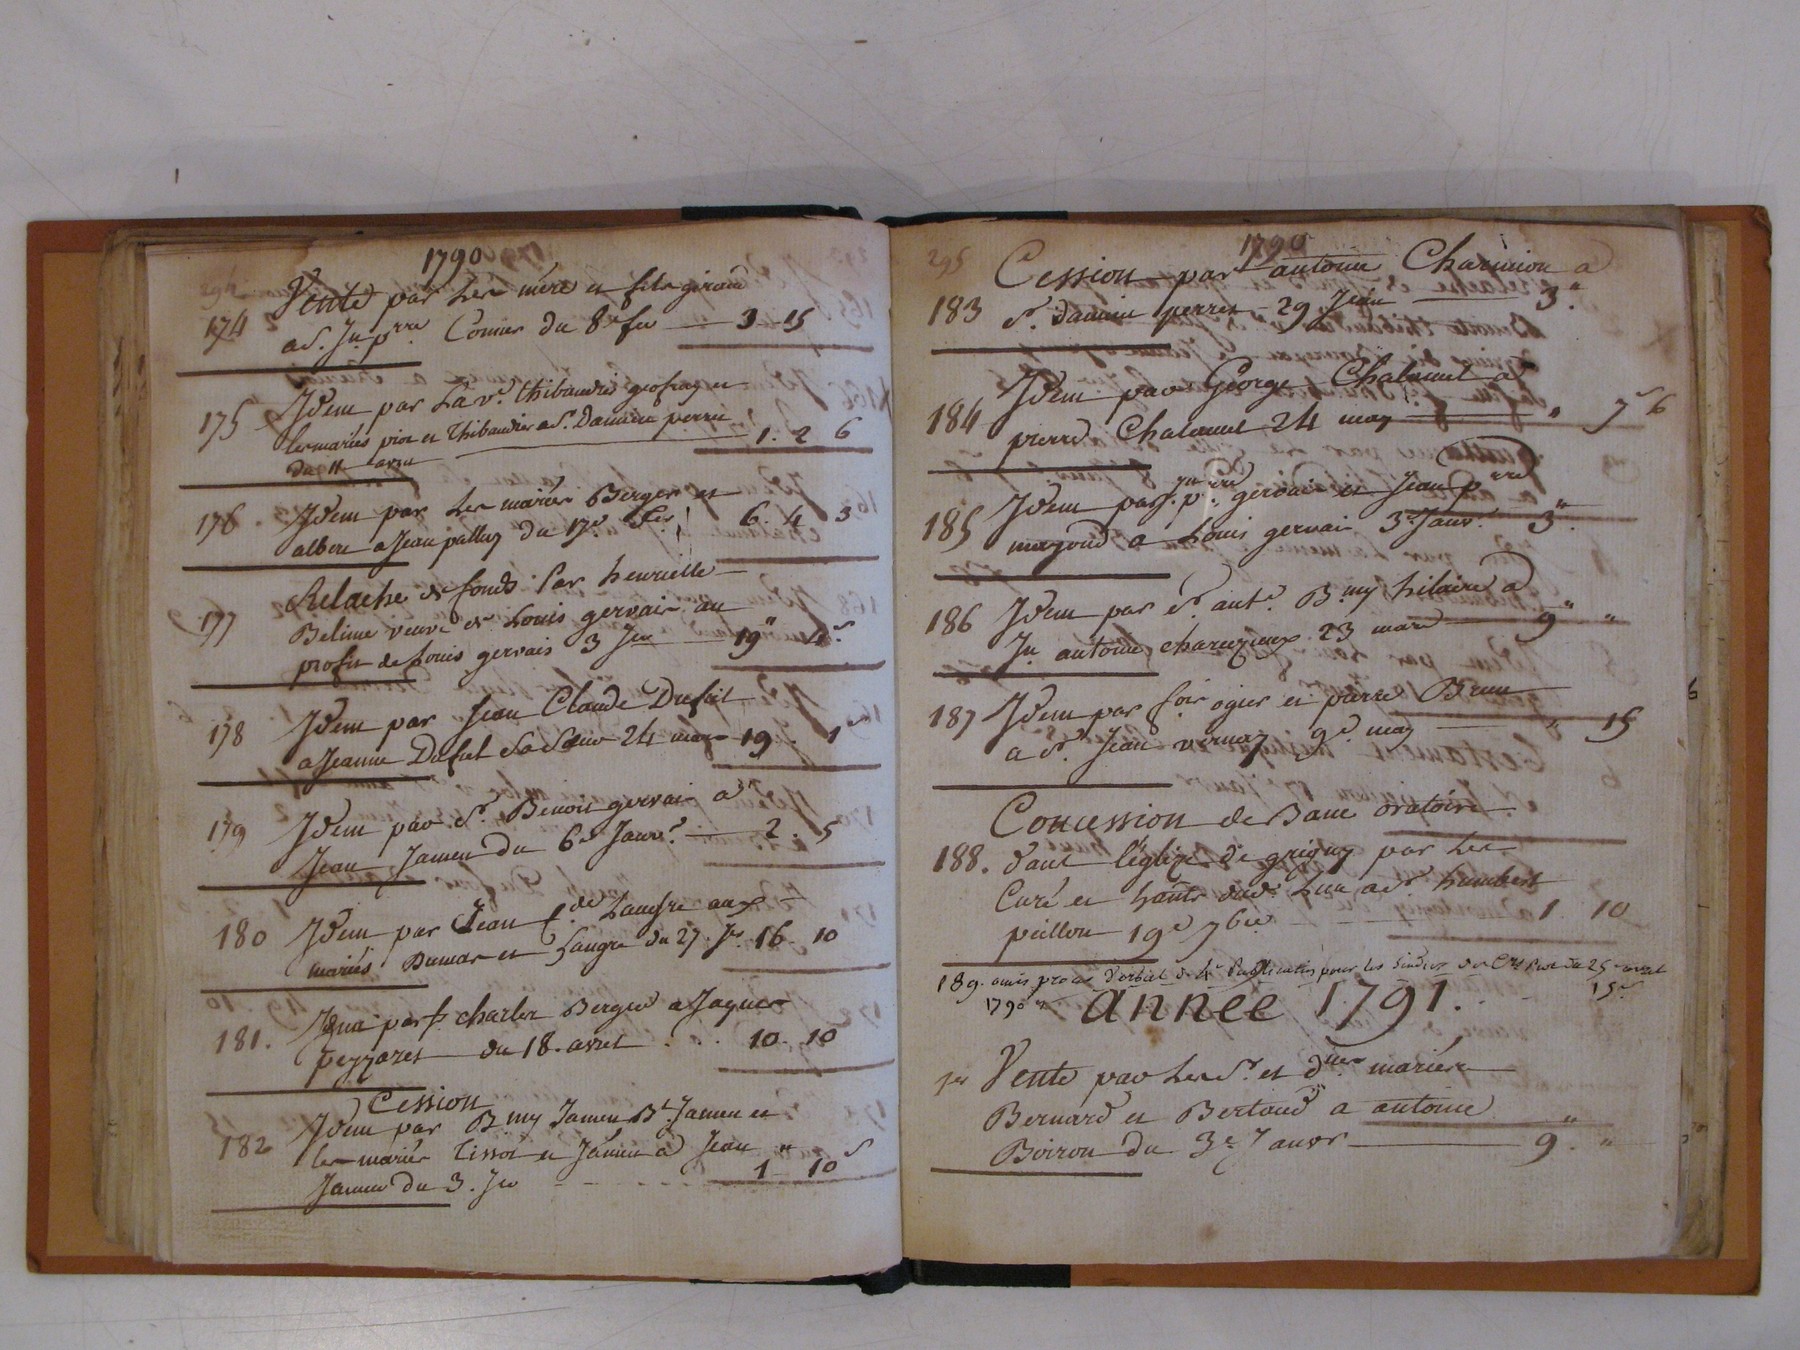 1790
Vente par Les mere et fils giraud
174 a S. Jn. pre. Comier du 8e fer 3 15
Idem par La ve. thibaudier geofray et
175 les mariés piot et Thibaudier a S. Damien perret
du 11 avril 1. 2 6
Idem par Les mariés Berger et
176 albere a Jean pallug du 17e fer 6. 4 3
Relache de fonds Par henriette
177 Belime veuve de Louis gervais au
profit de Louis gervais 3 Jer 19 " 4 s
Idem par Jean Claude Dufut
178 a Jeanne Dufut Sa Sœur 24 mars 19. 1 s
Idem par Sr. Benoit gervais a
179 Jean Jamen du 6e Janvr. 2. 5
180 Idem par Jean de Laugre aux
mariés Dumas et Laugre du 27. Jer. 16 10
Idem par charles Berger a Jaques
181. pezzaret du 18. avril 10. 10
Cession
Idem par B.my Jamen Bt. Jamen et
182 les mariés Tissot et Jamen a Jean
Jamen du 3. Jer 1 " 10 s
295 1790
Cession par antoine Charmion a
183 Sr. Damien perret 29 Juin 3 "
Idem par George Chalamel a
184 pierre Chalamel 24 may " 7 s 6
Jn pre
Idem par gervais et Jean pre
185 mayoud a Louis gervais 3e Janvr. 3 "
186 Idem par Sr. ant. B.my hilaire a
Jn antoine charezieux 23 mars 9 " "
187 Idem par fois ogier et pierre Brun
a Sr. Jean vernay 9e. may " 15
Concession de Banc oratoire
188. dans l'églize de grigny par Les
Curé et habts dud. Lieu a Sr humbert
peillon 19e 7bre 1. 10
189. omis procès verbal de 4e Publication pour les Sindics 25 avril
1790 15 s
annee 1791.
1er Vente par Les Sr. et dlles mariés
Bernard et Bertaud a antoine
Boiron du 3e Janvr 9 " "